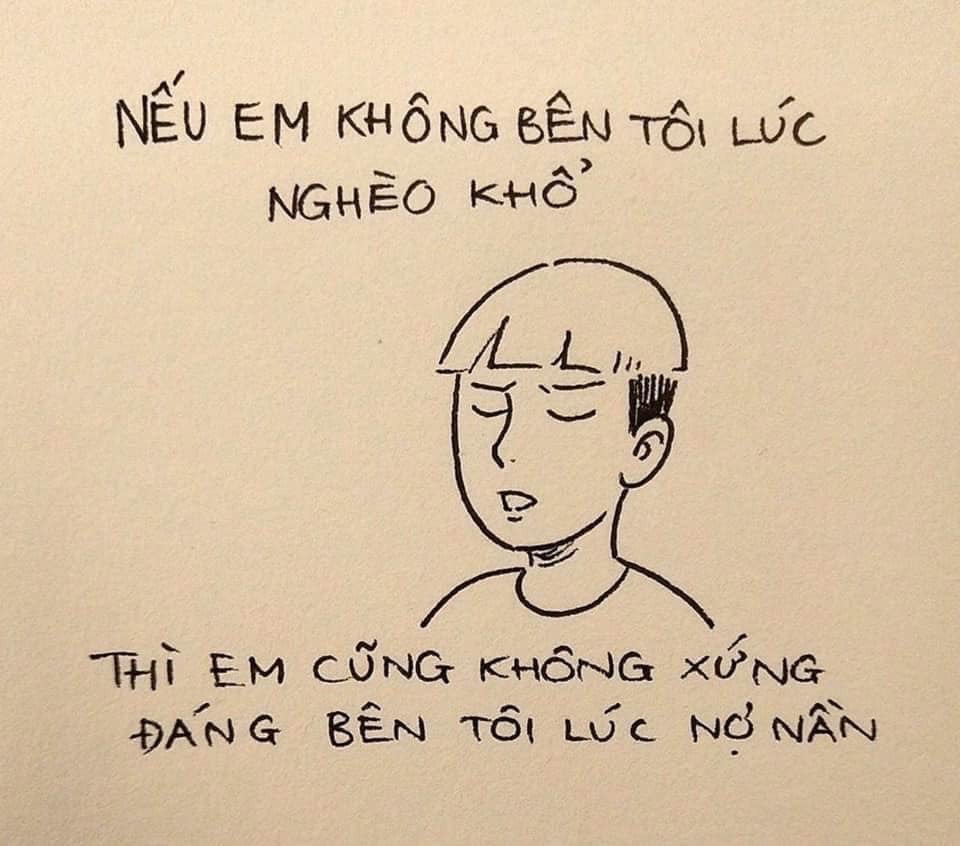 NẾU EM KHÔNG BÊN TÔI LÚC
NGHÈO KHỔ
THÌ EM CŨNG KHÔNG XỨNG
ĐÁNG BÊN TÔI LÚC NỢ NẦN